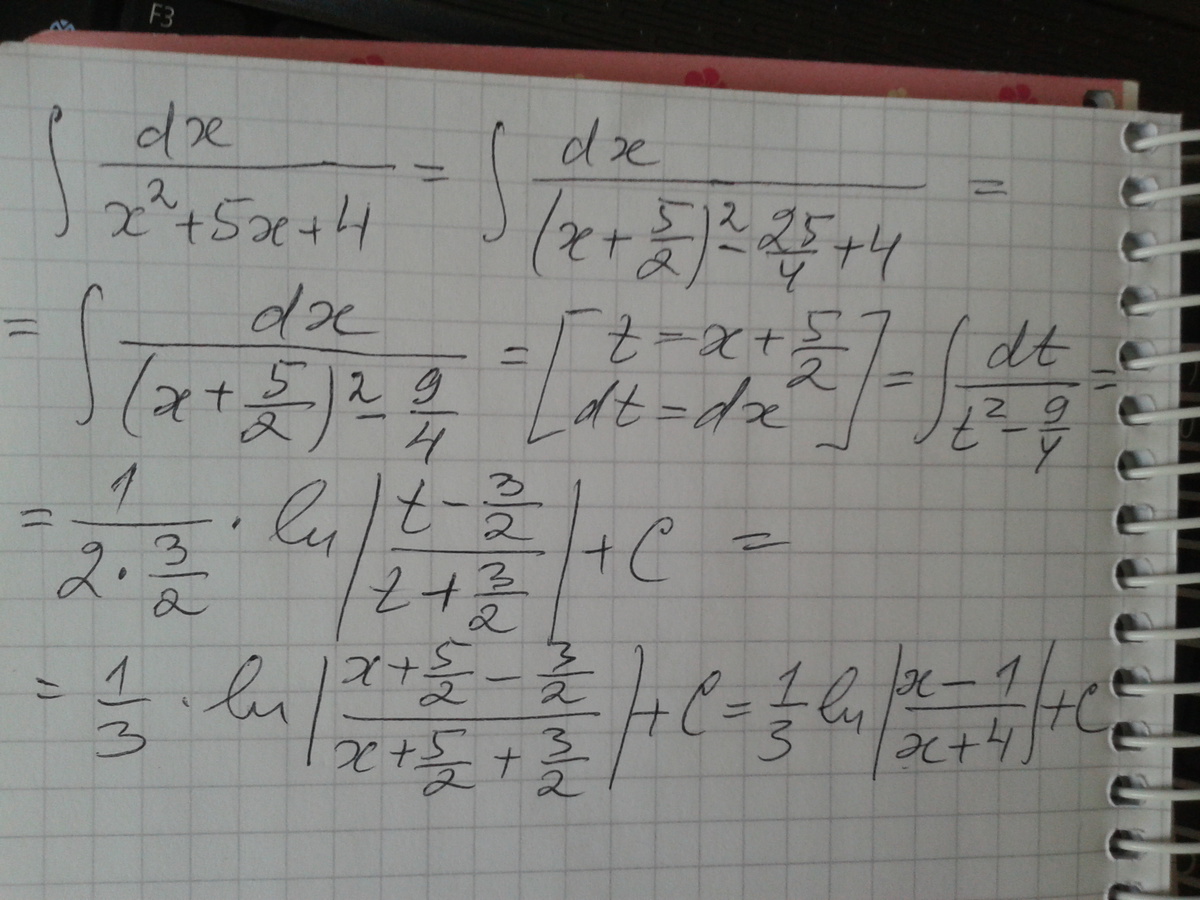 F3
∫ dx/(x²+5x+4) = ∫ dx/((x+5/2)²-25/4+4) =
= ∫ dx/((x+5/2)²-9/4) = [t=x+5/2 dt=dx] = ∫ dt/(t²-9/4) =
= 1/(2·3/2) · ln|(t-3/2)/(t+3/2)|+C =
= 1/3 · ln|(x+5/2-3/2)/(x+5/2+3/2)|+C = 1/3 ln|(x-1)/(x+4)|+C